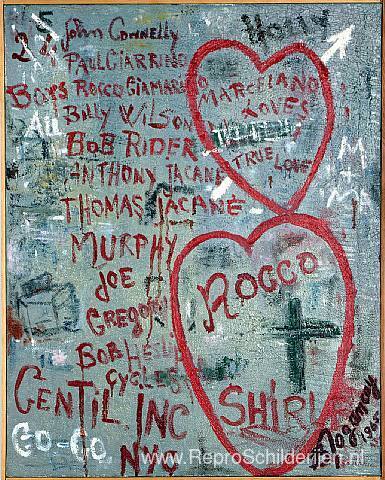 HOLLY
John Connelly
PAUL GIARRINO
BOYS ROCCO GIAMARINO
Billy WILSON
BOB RIDER
ANTHONY IACANE
THOMAS IACANE
MURPHY
JOE
GREGORI
BOB
CYCLES
GENTIL INC
GO-GO
NY
MARCELANO
LOVES
TRUE LOVE
M
M
ROCCO
SHIRL
1965
www.ReproSchilderijen.nl